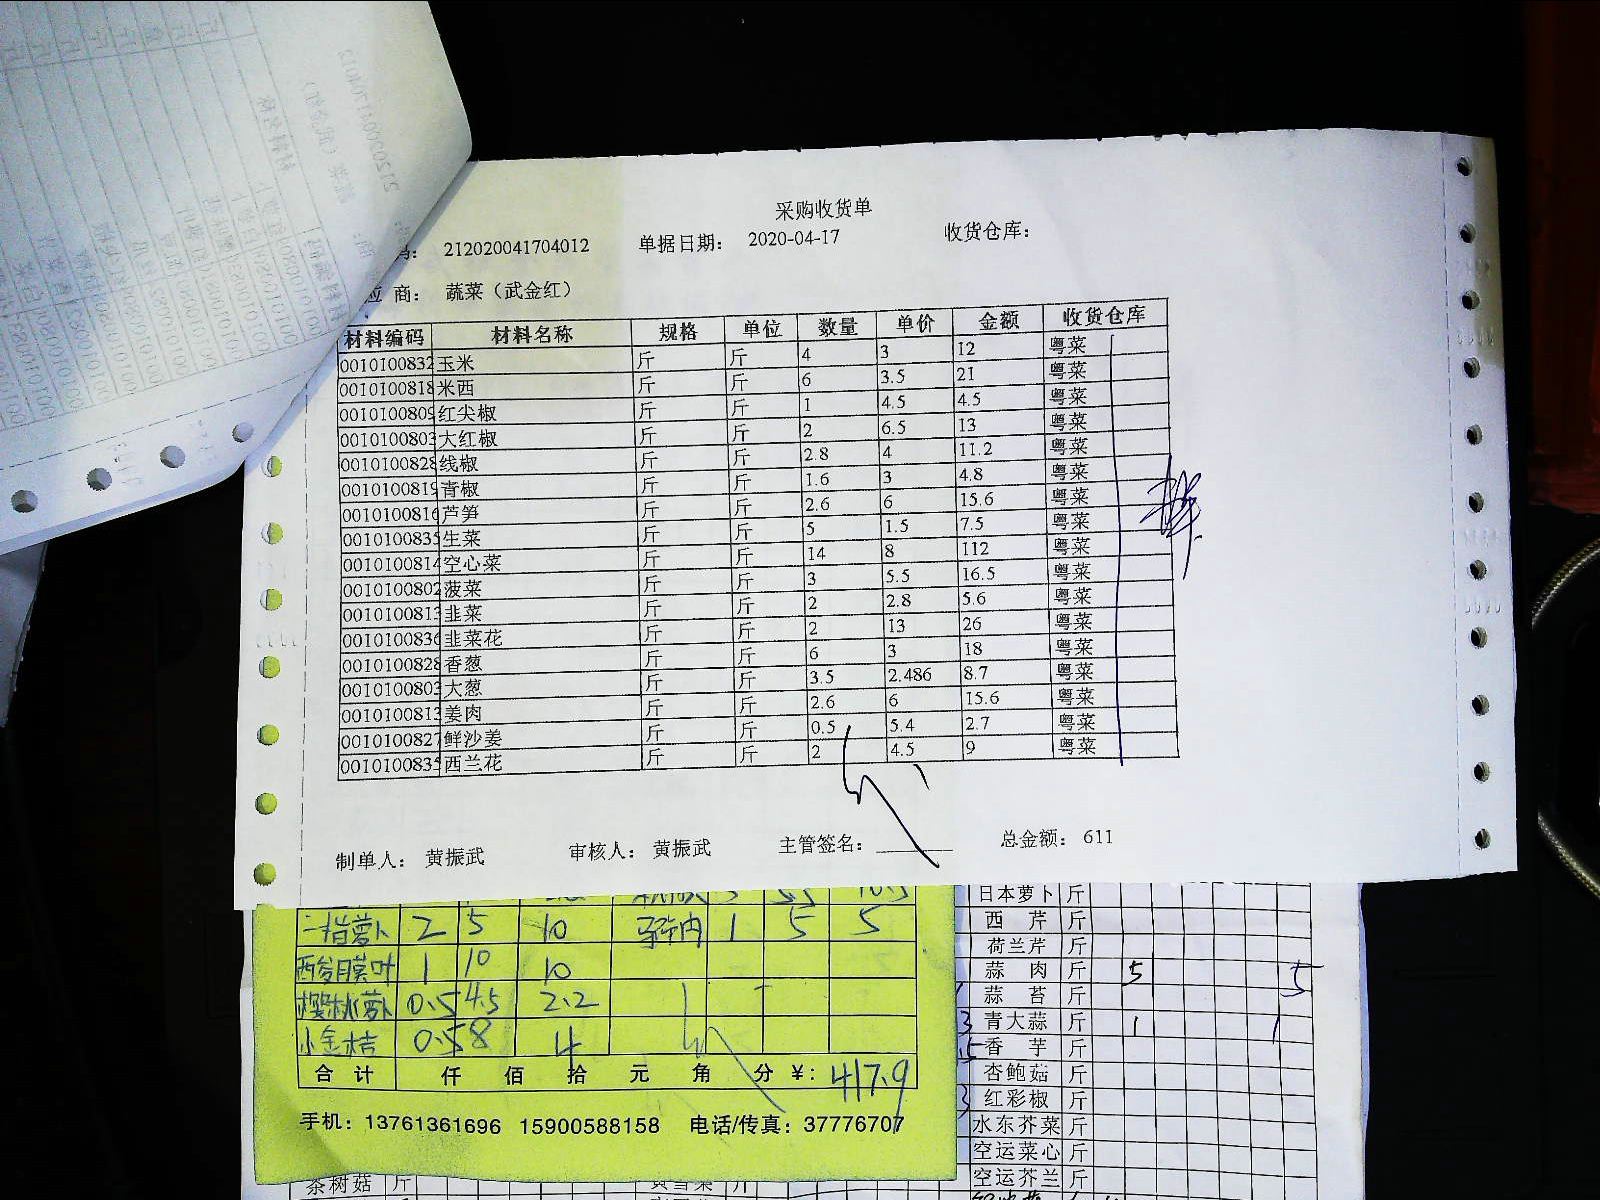 采购收货单
码： 212020041704012 单据日期： 2020-04-17 收货仓库：
应 商： 蔬菜（武金红）
材料编码 材料名称 规格 单位 数量 单价 金额 收货仓库
0010100832 玉米 斤 斤 4 3 12 粤菜
0010100818 米西 斤 斤 6 3.5 21 粤菜
0010100809 红尖椒 斤 斤 1 4.5 4.5 粤菜
0010100803 大红椒 斤 斤 2 6.5 13 粤菜
0010100828 线椒 斤 斤 2.8 4 11.2 粤菜
0010100819 青椒 斤 斤 1.6 3 4.8 粤菜
0010100816 芦笋 斤 斤 2.6 6 15.6 粤菜
0010100835 生菜 斤 斤 5 1.5 7.5 粤菜
0010100814 空心菜 斤 斤 14 8 112 粤菜
0010100802 菠菜 斤 斤 3 5.5 16.5 粤菜
0010100813 韭菜 斤 斤 2 2.8 5.6 粤菜
0010100836 韭菜花 斤 斤 2 13 26 粤菜
0010100828 香葱 斤 斤 6 3 18 粤菜
0010100803 大葱 斤 斤 3.5 2.486 8.7 粤菜
0010100813 姜肉 斤 斤 2.6 6 15.6 粤菜
0010100827 鲜沙姜 斤 斤 0.5 5.4 2.7 粤菜
0010100835 西兰花 斤 斤 2 4.5 9 粤菜
制单人： 黄振武 审核人： 黄振武 主管签名： 总金额： 611
二指萝卜 2 5 10 1 5 5
1 10 10
樱桃萝卜 0.5 4.5 2.2
小金桔 0.5 8 4
合 计 仟 佰 拾 元 角 分 ¥： 417.9
手机：13761361696 15900588158 电话/传真：37776707
日本萝卜 斤
西 芹 斤
荷兰芹 斤
蒜 肉 斤 5 5
蒜 苔 斤
3 青大蒜 斤 1 1
香 芋 斤
杏鲍菇 斤
3 红彩椒 斤
水东芥菜 斤
空运菜心 斤
空运芥兰 斤
茶树菇 斤